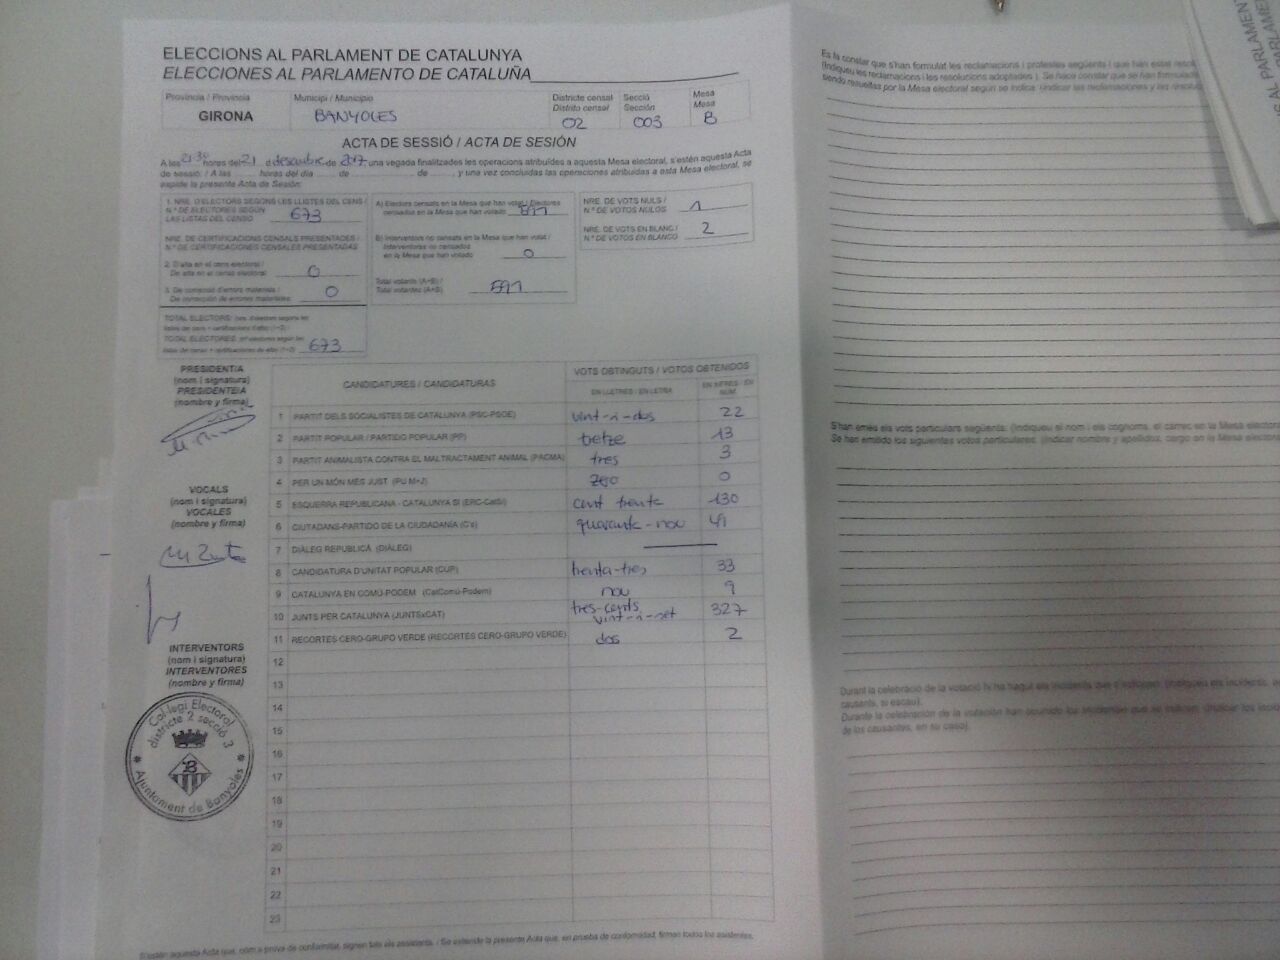 ELECCIONS AL PARLAMENT DE CATALUNYA
ELECCIONES AL PARLAMENTO DE CATALUÑA
Província / Provincia
GIRONA
Municipi / Municipio
BANYOLES
Districte censal
Distrito censal
02
Secció
Sección
003
Mesa
Mesa
B
ACTA DE SESSIÓ / ACTA DE SESIÓN
A les 21'30 hores del 21 d desembre de 2017 una vegada finalitzades les operacions atribuïdes a aquesta Mesa electoral, s'estén aquesta Acta
de sessió. / A las ...... horas del día ...... de ...... de ......, y una vez concluidas las operaciones atribuidas a esta Mesa electoral, se
expide la presente Acta de Sesión:
1. NRE. D'ELECTORS SEGONS LES LLISTES DEL CENS /
N.º DE ELECTORES SEGÚN
LAS LISTAS DEL CENSO
673
NRE. DE CERTIFICACIONS CENSALS PRESENTADES /
N.º DE CERTIFICACIONES CENSALES PRESENTADAS
2. D'alta en el cens electoral /
De alta en el censo electoral
0
3. De correcció d'errors materials /
De corrección de errores materiales
0
TOTAL ELECTORS:
TOTAL ELECTORES:
673
A) Electors censats en la Mesa que han votat / Electores
censados en la Mesa que han votado
591
B) Interventors no censats en la Mesa que han votat /
Interventores no censados
en la Mesa que han votado
0
Total votants (A+B) /
Total votantes (A+B)
591
NRE. DE VOTS NULS /
N.º DE VOTOS NULOS
1
NRE. DE VOTS EN BLANC /
N.º DE VOTOS EN BLANCO
2
PRESIDENT/A
(nom i signatura)
PRESIDENTE/A
(nombre y firma)
VOCALS
(nom i signatura)
VOCALES
(nombre y firma)
INTERVENTORS
(nom i signatura)
INTERVENTORES
(nombre y firma)
Col·legi Electoral
districte 2 secció 3
Ajuntament de Banyoles
CANDIDATURES / CANDIDATURAS
VOTS OBTINGUTS / VOTOS OBTENIDOS
EN LLETRES / EN LETRA
EN XIFRES / EN NÚM.
1 PARTIT DELS SOCIALISTES DE CATALUNYA (PSC-PSOE) vint-i-dos 22
2 PARTIT POPULAR / PARTIDO POPULAR (PP) tretze 13
3 PARTIT ANIMALISTA CONTRA EL MALTRACTAMENT ANIMAL (PACMA) tres 3
4 PER UN MÓN MÉS JUST (PU M+J) zero 0
5 ESQUERRA REPUBLICANA - CATALUNYA SÍ (ERC-CatSí) cent trenta 130
6 CIUTADANS-PARTIDO DE LA CIUDADANÍA (C's) quaranta-nou 49
7 DIÀLEG REPUBLICÀ (DIÀLEG)
8 CANDIDATURA D'UNITAT POPULAR (CUP) trenta-tres 33
9 CATALUNYA EN COMÚ-PODEM (CatComú-Podem) nou 9
10 JUNTS PER CATALUNYA (JUNTSxCAT) tres-cents vint-i-set 327
11 RECORTES CERO-GRUPO VERDE (RECORTES CERO-GRUPO VERDE) dos 2
12
13
14
15
16
17
18
19
20
21
22
23
S'estén aquesta Acta que, com a prova de conformitat, signen tots els assistents. / Se extiende la presente Acta que, en prueba de conformidad, firman todos los asistentes.
Es fa constar que s'han formulat les reclamacions i protestes següents i que han estat
(Indiqueu les reclamacions i les resolucions adoptades). Se hace constar que se han formulado
siendo resueltas por la Mesa electoral según se indica: (indicar las reclamaciones y las
S'han emès els vots particulars següents: (Indiqueu el nom i els cognoms, el càrrec en la Mesa
Se han emitido los siguientes votos particulares: (indicar nombre y apellidos, cargo en la Mesa
Durant la celebració de la votació hi ha hagut els incidents que s'indiquen: (indiqueu els incidents,
causants, si escau).
Durante la celebración de la votación han ocurrido los incidentes que se indican: (indicar los
de los causantes, en su caso).
AL PARLAMENT